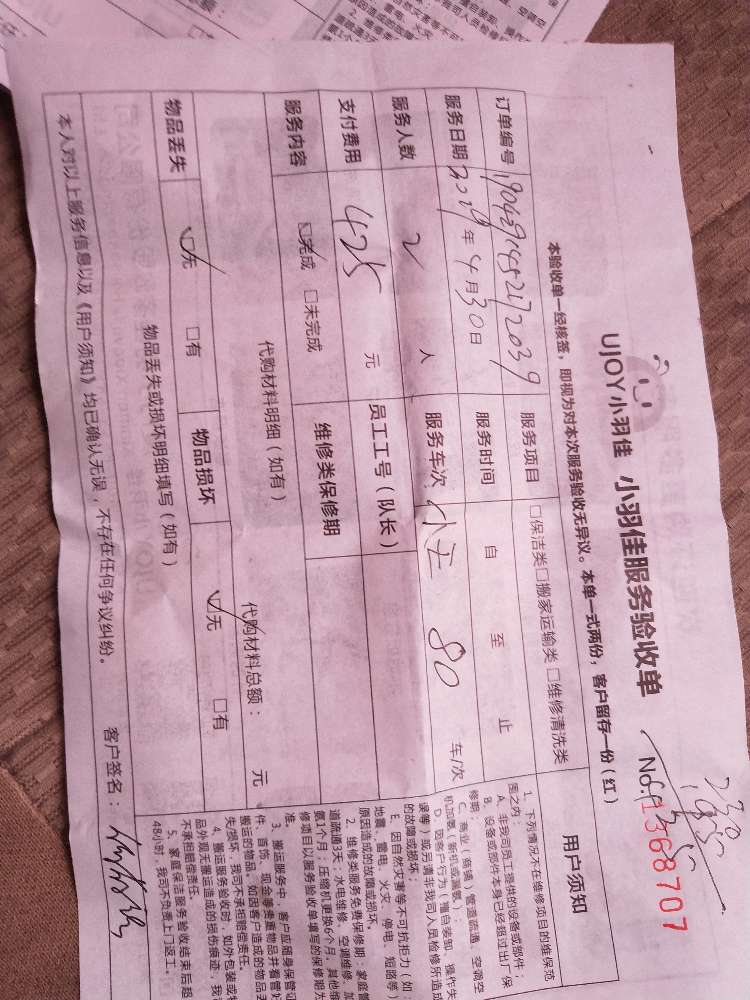 UJOY小羽佳 小羽佳服务验收单
No. 1368707
230
195
本验收单一经核签，即视为对本次服务验收无异议。本单一式两份，客户留存一份（红）
订单编号 服务项目 □保洁类□搬家运输类□维修清洗类
服务日期 2019年4月30日 服务时间 自 至 止
服务人数 2 人 服务车次 80 车/次
支付费用 425 元 员工工号（队长）
服务内容 ☑完成 □未完成 维修类保修期
代购材料明细（如有） 代购材料总额： 元
物品丢失 ☑无 □有 物品损坏 ☑无 □有
物品丢失或损坏明细填写（如有）
本人对以上服务信息以及《用户须知》均已确认无误，不存在任何争议纠纷。 客户签名：
用户须知
1、下列情况不在维修项目的维保范
围之内：
A、非我司员工提供的设备或部件；
B、设备或部件本身已经超过出厂保
修期
C、商业（商铺）管道疏通，空调空
机加氟（新机或漏氟）；
D、因客户行为（擅自装卸、操作失
误等）或另请非我司人员检修所造成
的故障或损坏；
E、因自然灾害等不可抗拒力（如：
地震、雷电、火灾、停电、短路等）
原因造成的故障或损坏。
2、维修类服务免费保修期：家庭管
道疏通3天；水电维修、空调维修、加
氟1个月；压缩机更换6个月，其他维
修项目以服务验收单填写的保修期为
准。
3、搬运服务中，客户应随身保管证
件、首饰、现金等贵重物品并看管好
搬运的物品。如因客户造成的物品丢
失/损坏，我司不承担赔偿责任。
4、搬运服务验收时，如外包装或物
品外观无搬运造成的损伤痕迹，我司
不承担赔偿责任。
5、家庭保洁服务验收结束后超
48小时，我司不负责上门返工。